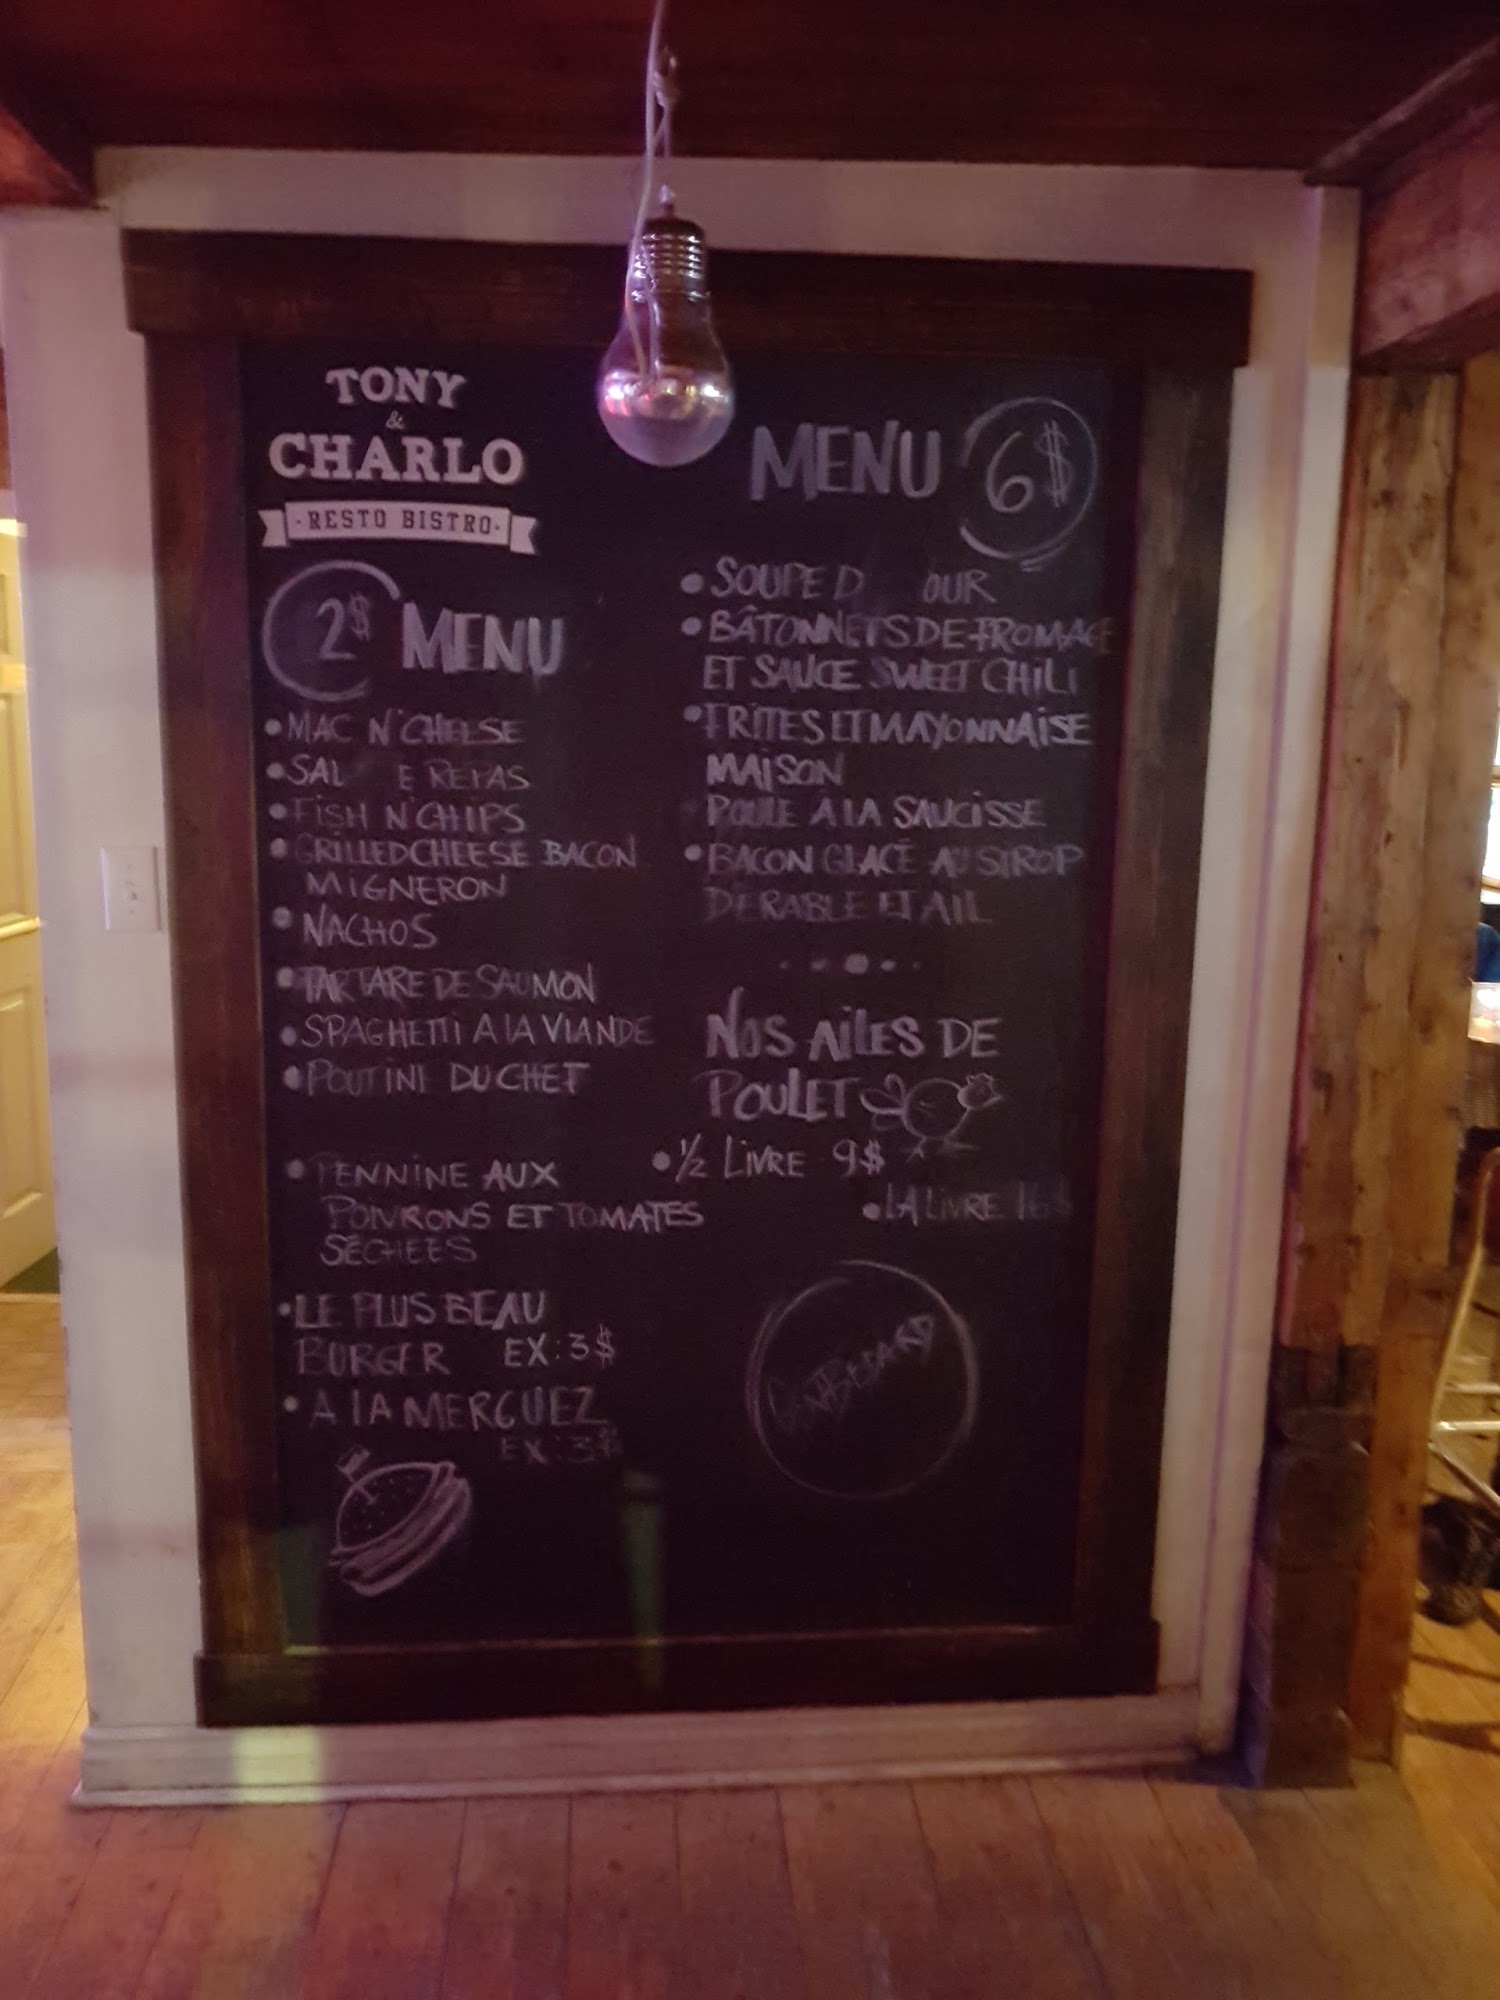 TONY
&
CHARLO
· RESTO BISTRO ·
2$ MENU
• MAC N'CHEESE
• SAL E REPAS
• FISH N'CHIPS
• GRILLED CHEESE BACON
MIGNERON
• NACHOS
• TARTARE DE SAUMON
• SPAGHETTI A LA VIANDE
• POUTINE DU CHEF
• PENNINE AUX
POIVRONS ET TOMATES
SÉCHÉES
• LE PLUS BEAU
BURGER EX: 3$
• A LA MERGUEZ
EX: 3$
MENU 6$
• SOUPE D OUR
• BÂTONNETS DE FROMAGE
ET SAUCE SWEET CHILI
• FRITES ET MAYONNAISE
MAISON
POULE A LA SAUCISSE
• BACON GLACÉ AU SIROP
DERABLE ET AIL
NOS AILES DE
POULET
• 1/2 LIVRE 9$
• LA LIVRE 16$